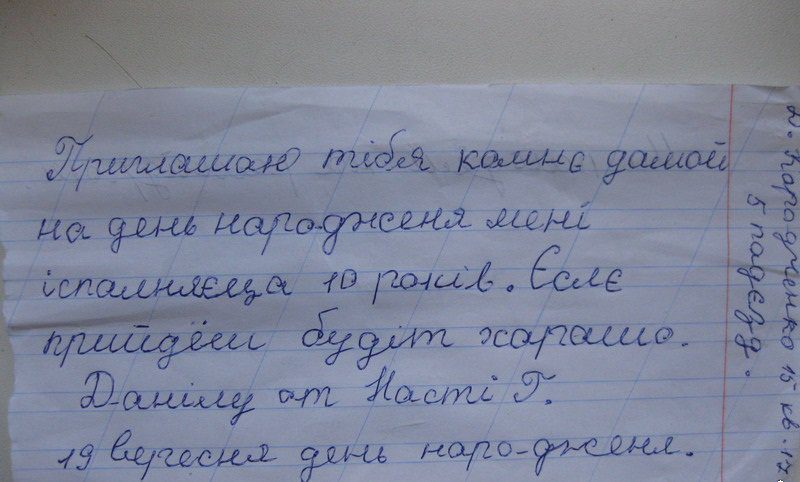 Приглашаю тібя камнє дамой
на день народженя мені
іспалняєца 10 років. Єслє
прийдёш будіт харашо.
Данілу от Насті Г.
19 вересня день народженя.
15 кв. 17
5 падєзд.